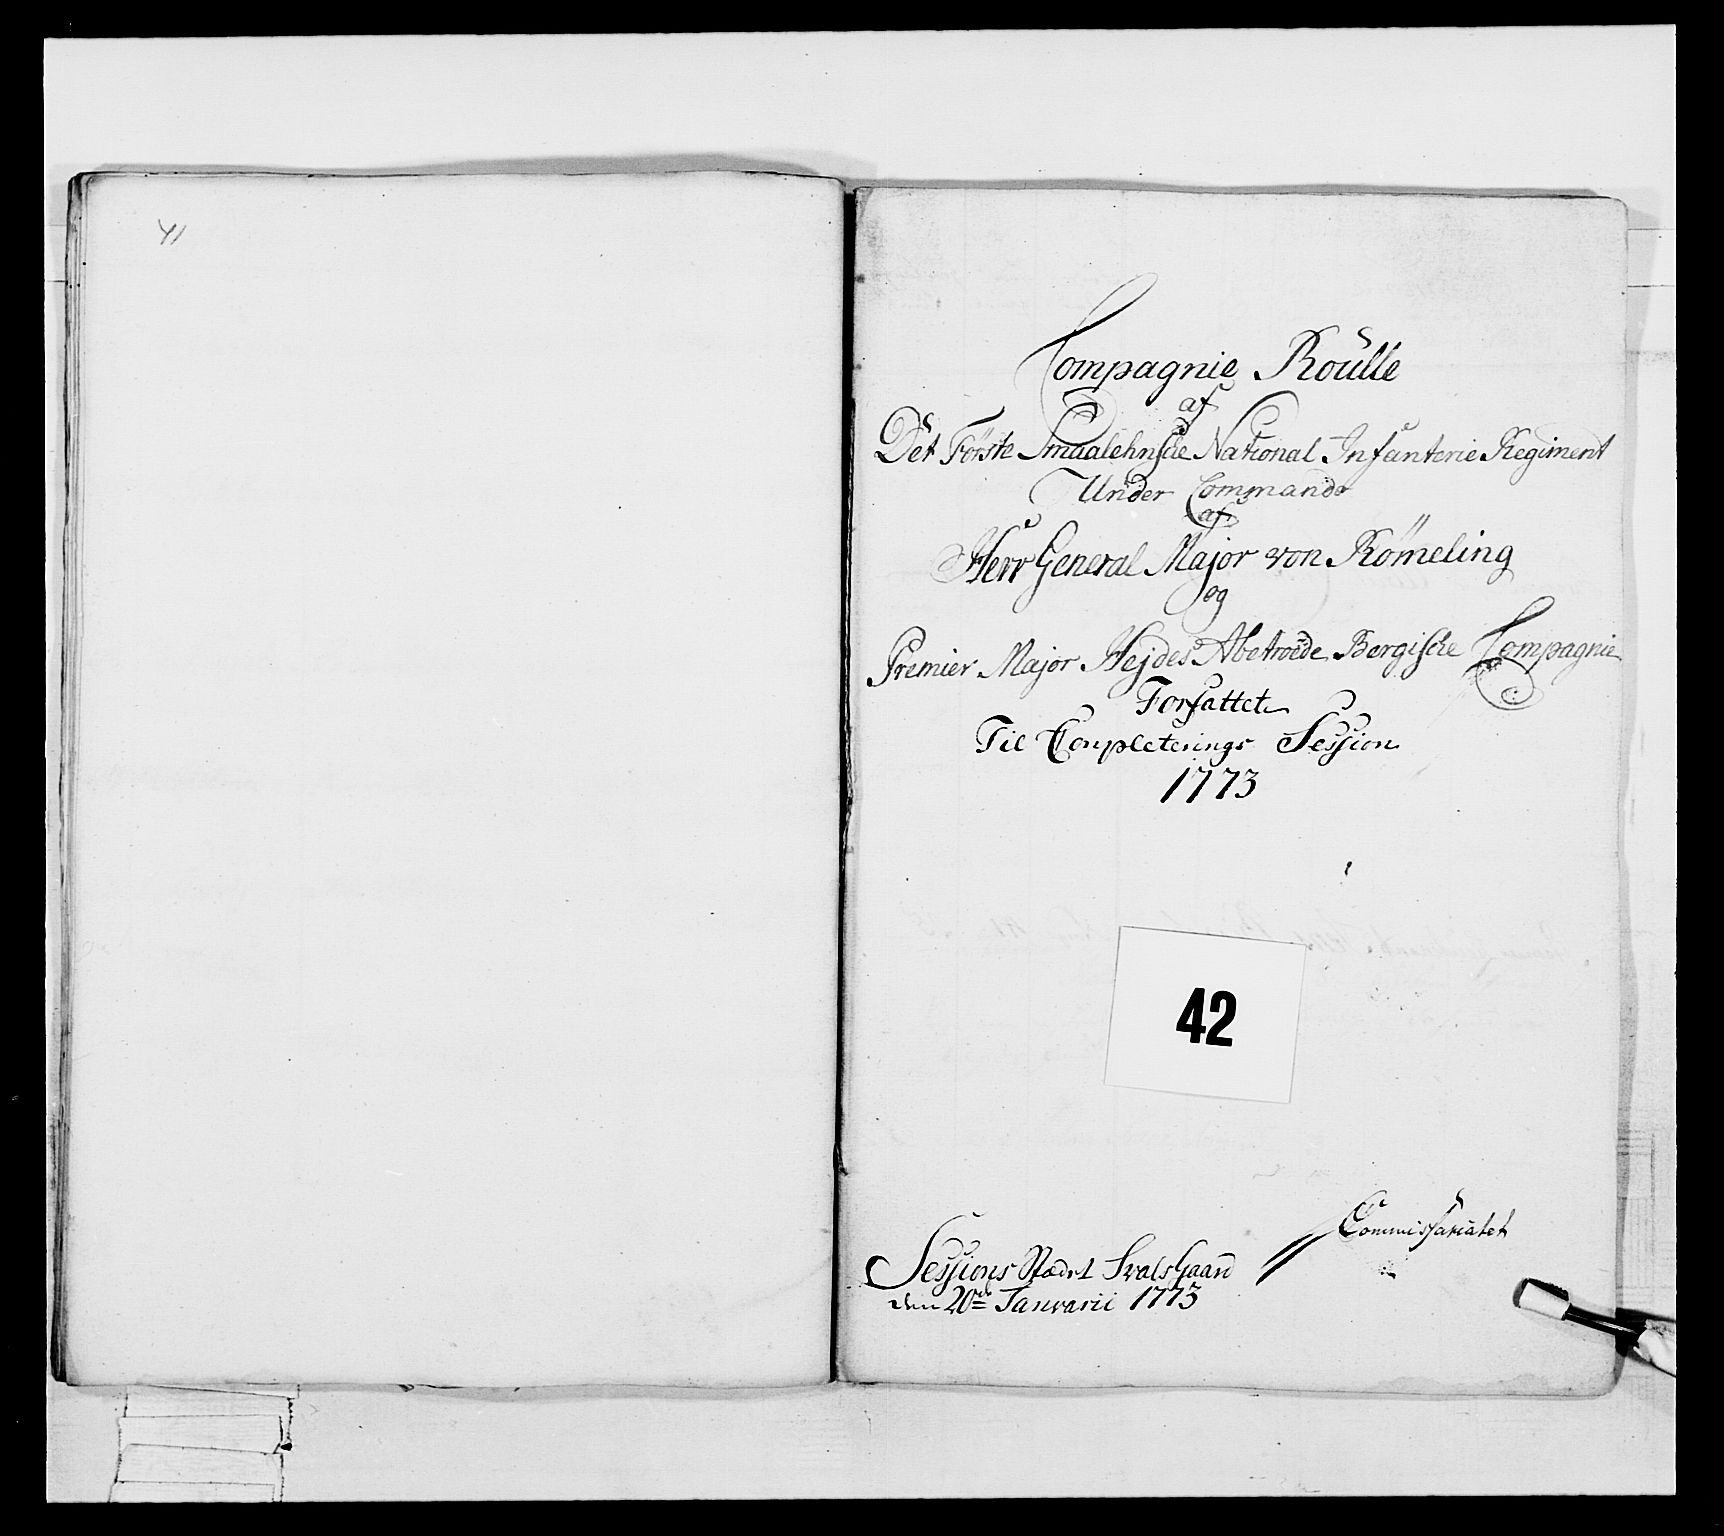 41
Compagnie Roulle
af
Det Förste Smaalehnsche National Infanterie Regiment
Under Commando
af
Herr General Major von Römeling
og
Premier Major Hejdes Abetroede Bergische Compagnie
Forfattet
Til Conpleterings Session
1773
42
Commissariatet
Sessions Stædet Svals Gaard
den 20de Januarii 1773